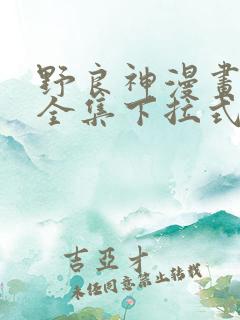 野良神漫畫
全集下拉式
吉亞才
未經同意禁止轉載